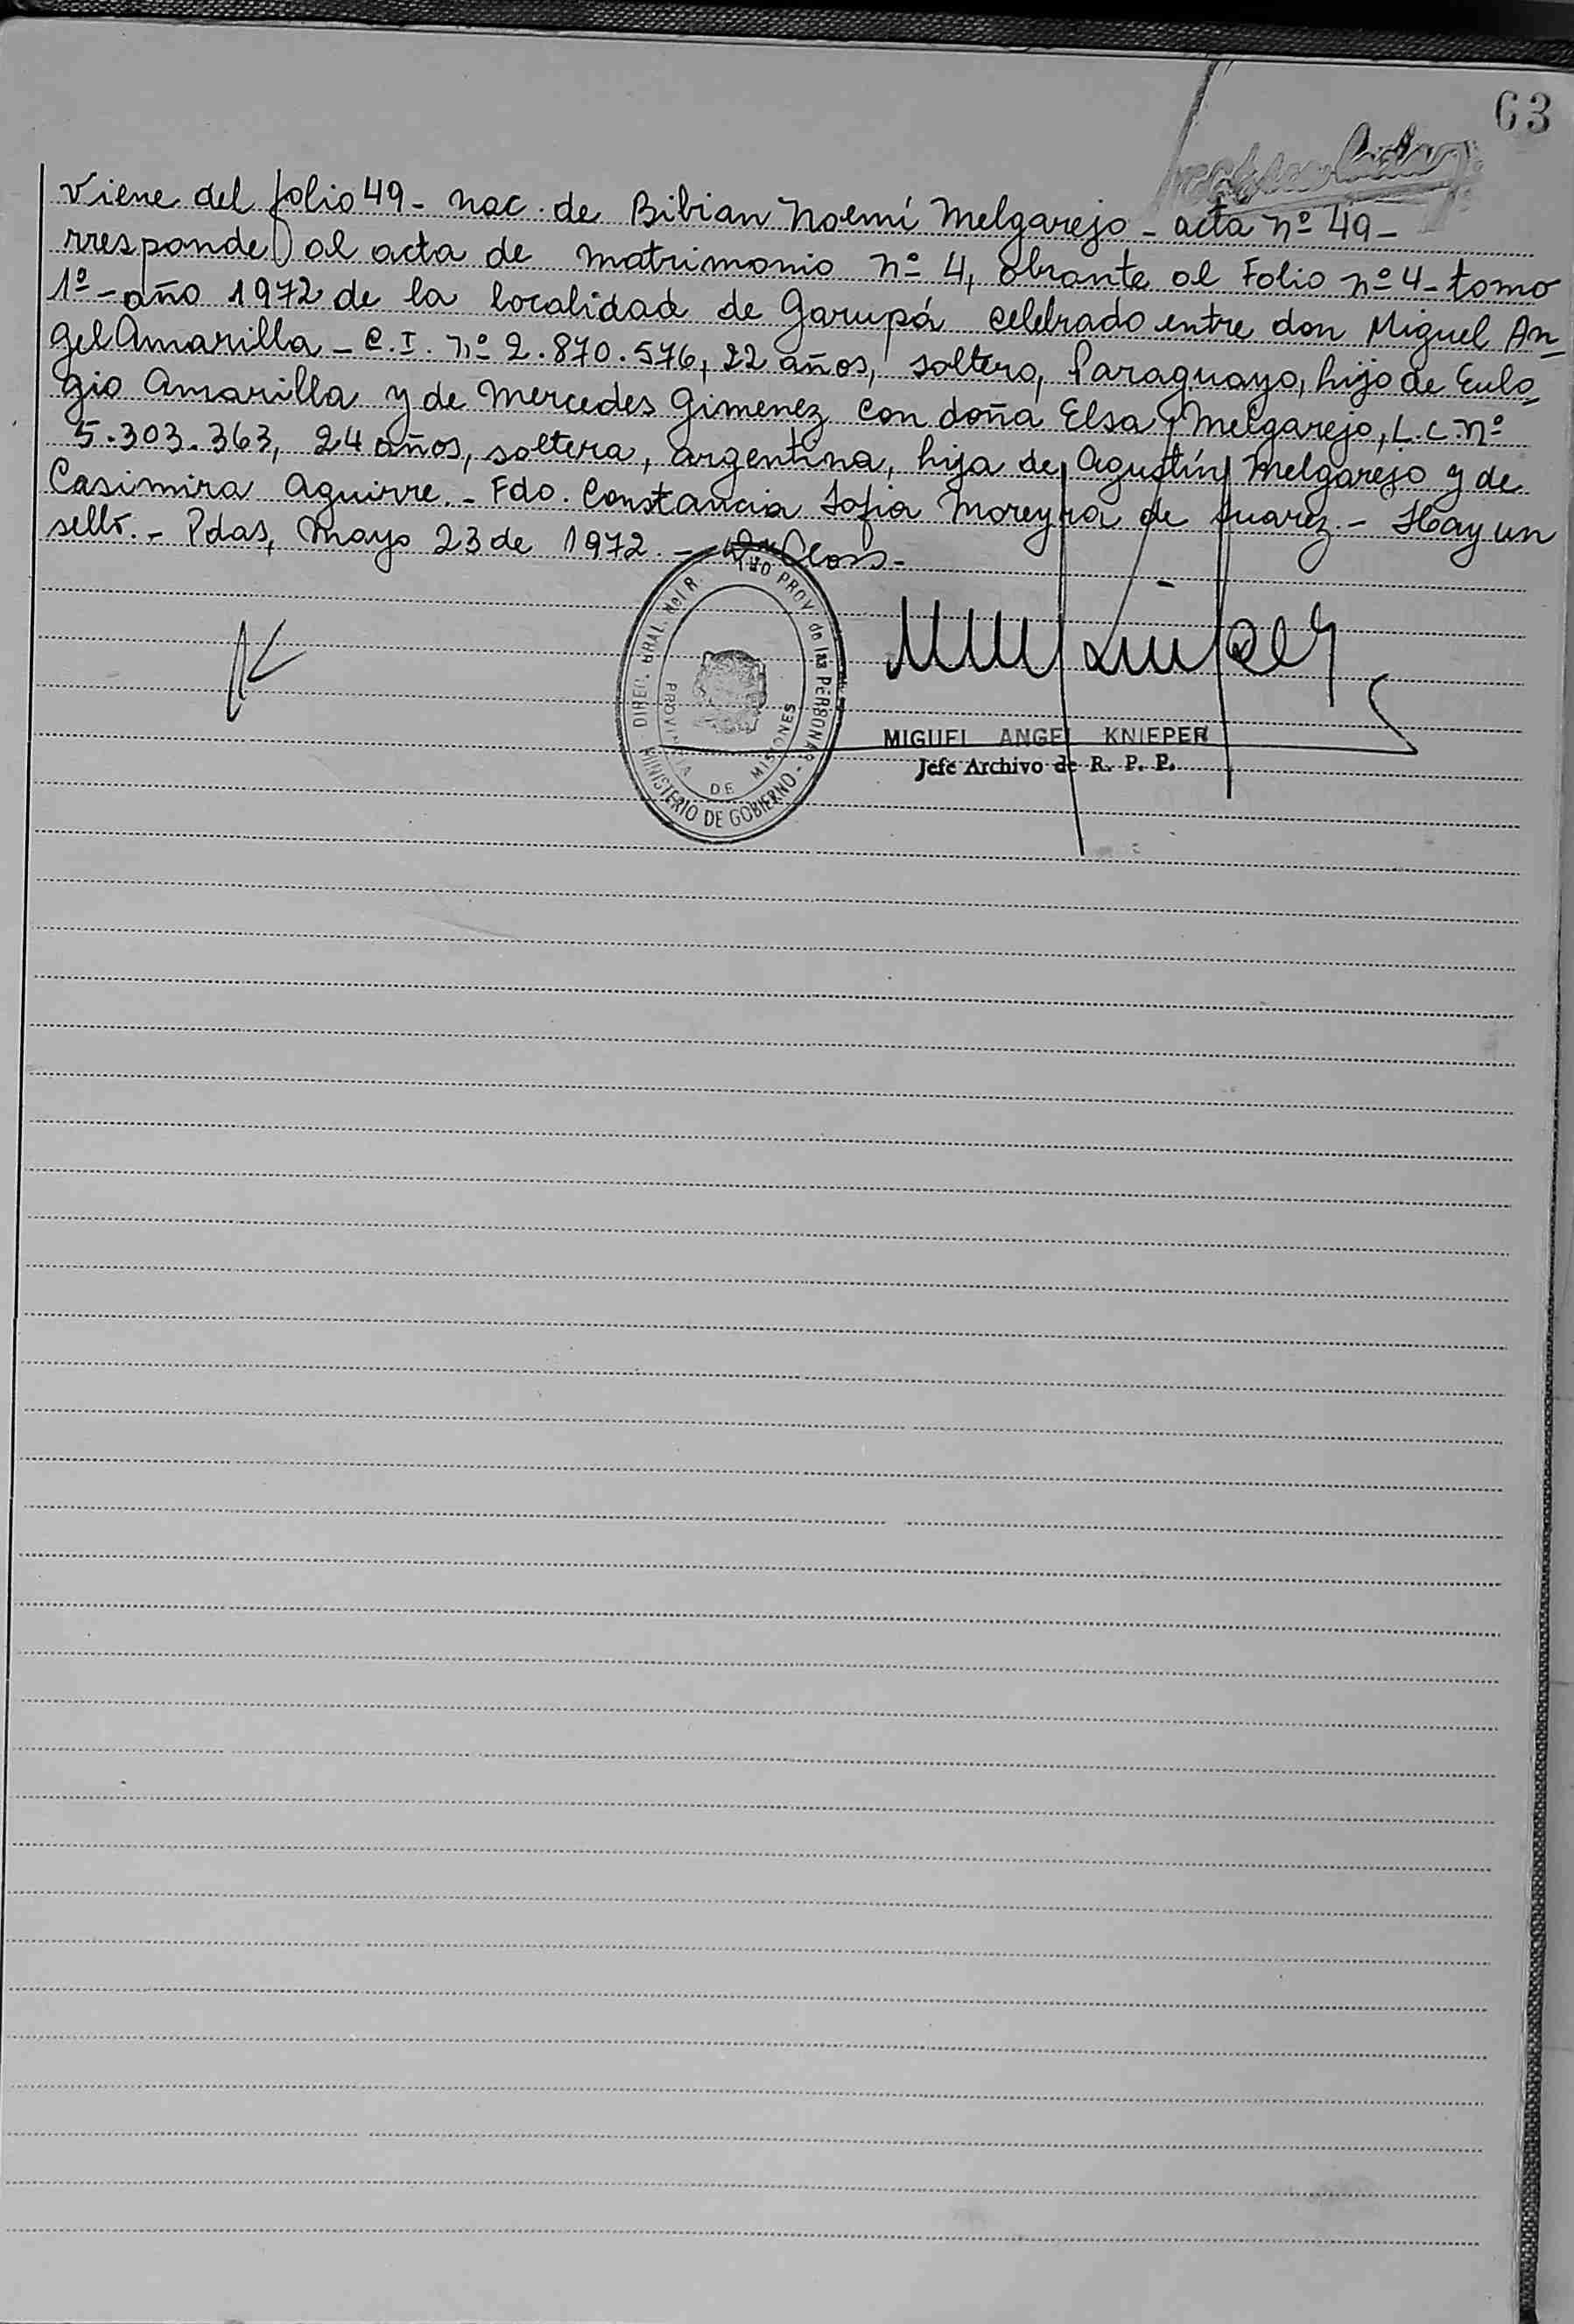 63
Viene del folio 49 - nac. de Bibian Noemí Melgarejo - acta nº 49 -
rresponde al acta de matrimonio nº 4, obrante al Folio nº 4 - tomo
1º - año 1972 de la localidad de Garupá celebrado entre don Miguel An_
gel Amarilla - C.I. nº 2.870.576, 22 años, soltero, Paraguayo, hijo de Eulo_
gio Amarilla y de Mercedes Gimenez con doña Elsa Melgarejo, L.C. nº
5.303.363, 24 años, soltera, argentina, hija de Agustín Melgarejo y de
Casimira Aguirre. - Fdo. Constancia Sofia Moreyra de Juarez. - Hay un
sello. - Pdas, Mayo 23 de 1972. -
DIREC. GRAL. del R. PROV de las PERSONAS
MINISTERIO DE GOBIERNO -
PROVINCIA DE MISIONES
MIGUEL ANGEL KNIEPER
Jefe Archivo de R. P. P.